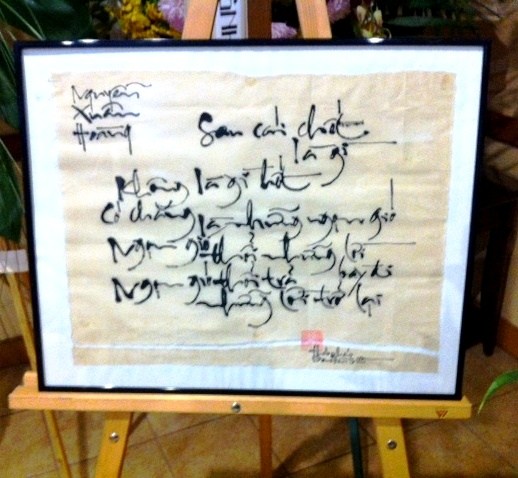 Nguyễn
Xuân
Hoàng
Sau cái chết
là gì
Không là gì hết
Có chăng là những ngọn gió
Ngọn gió thổi những lời
bay đi
Ngọn gió thổi trả
những lời trở lại